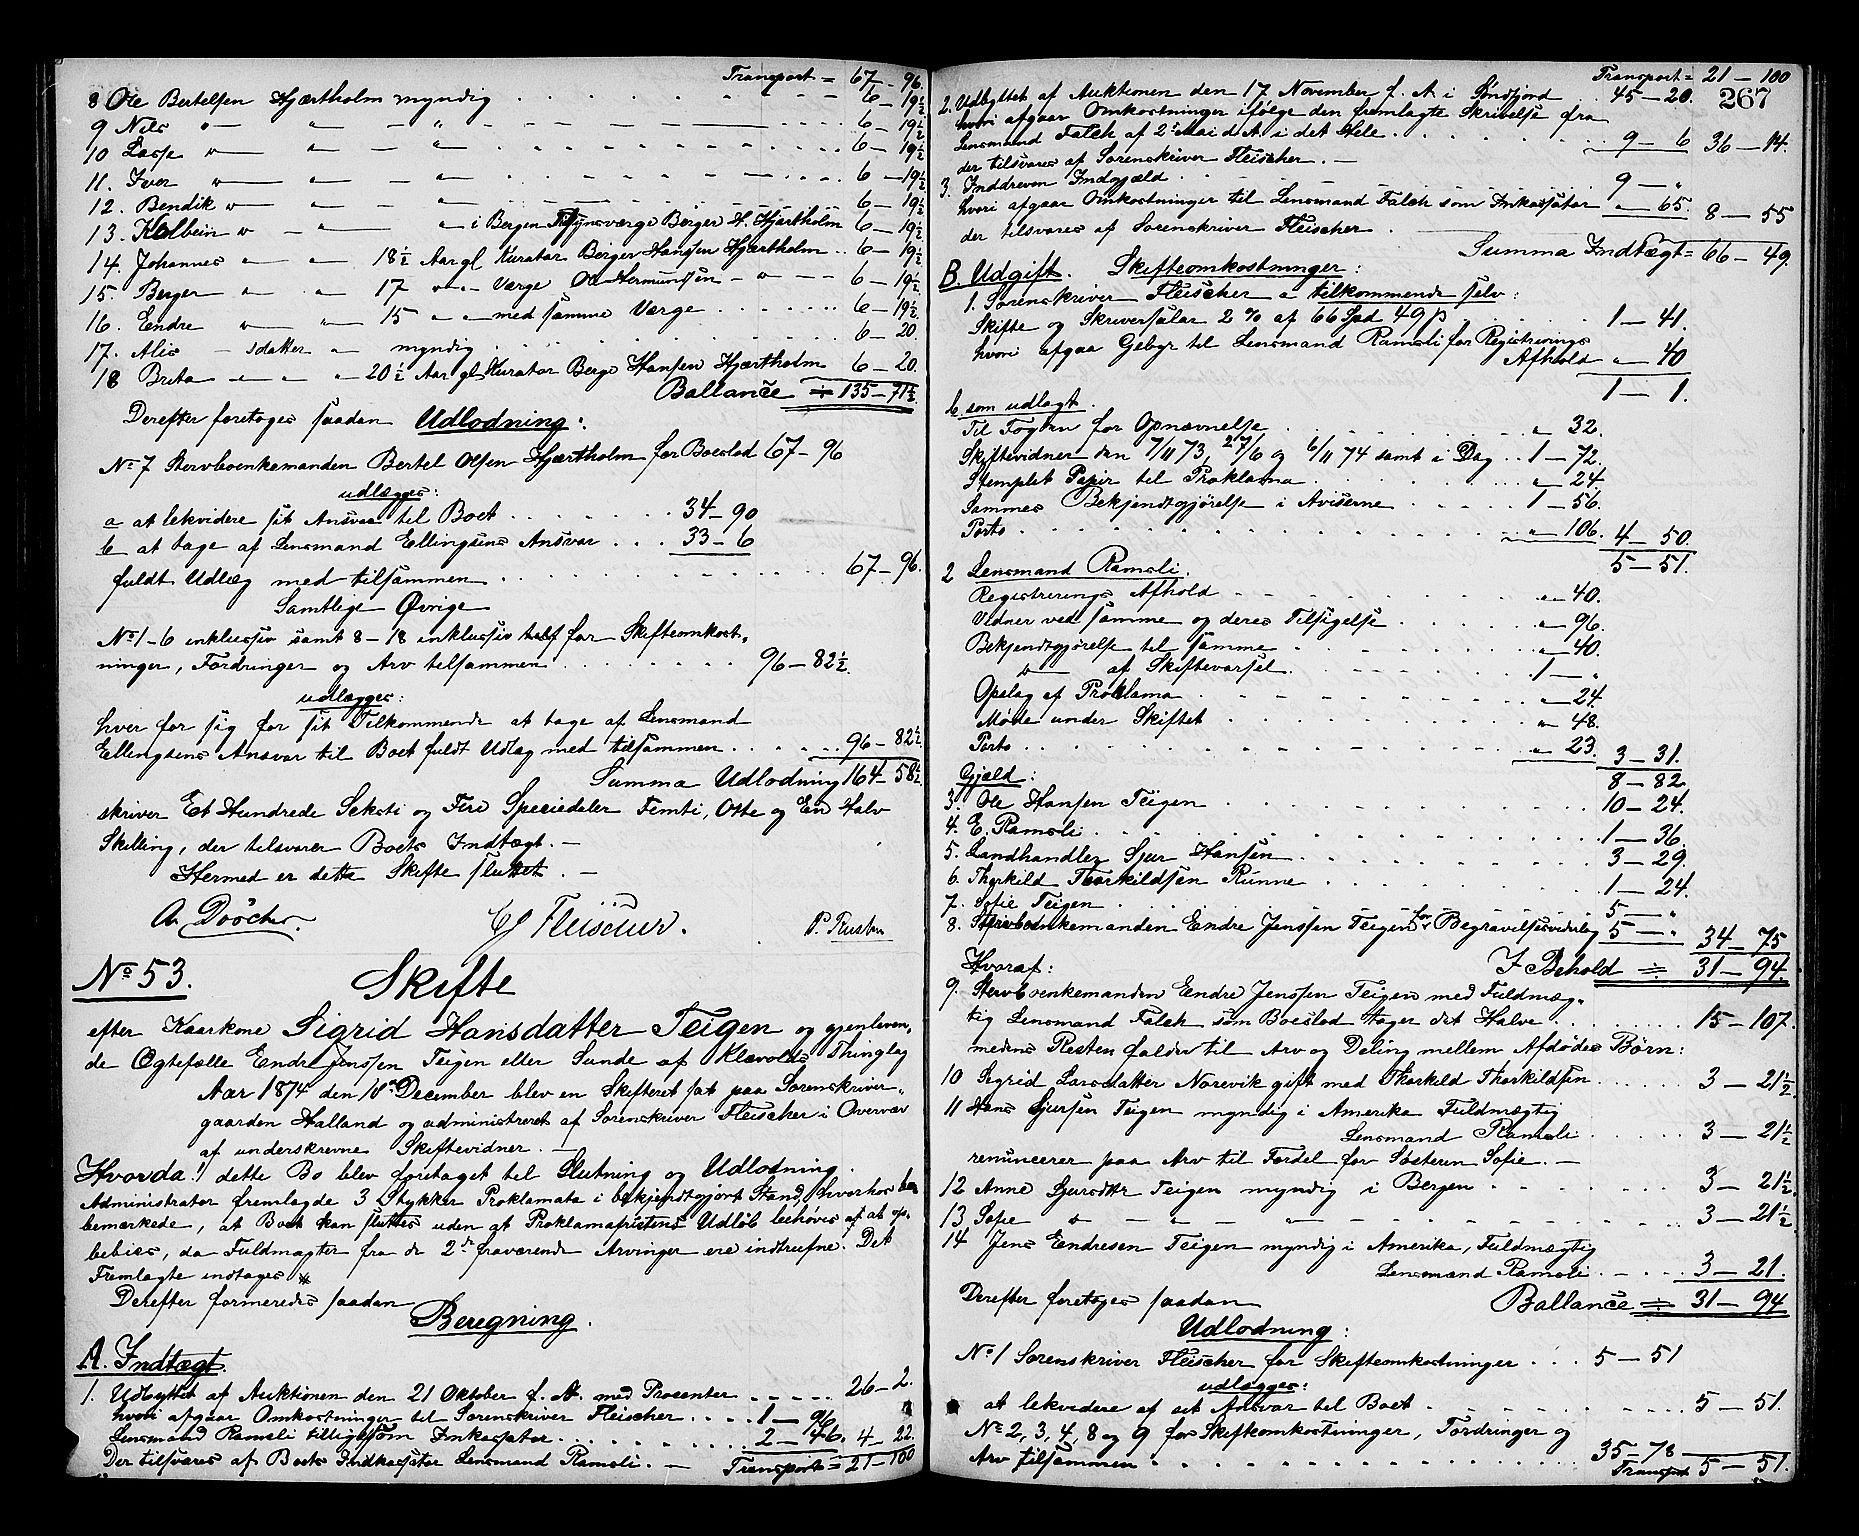 Transport = 67 – 96.
8 Ole Bertelsen Hjærtholm myndig . . . 6 – 19½
9 Nils " — " — " — . . . 6 – 19½
10 Lasse " — " — " . . . 6 – 19½
11. Iver " — " — " . . . 6 – 19½
12. Bendik " — " — " . . . 6 – 19½
13. Kolbein " — " — " i Bergen Tilsynsværge Berger H. Hjærtholm 6 – 19½
14. Johannes " — " — 18½ Aar gl Kurator Berger Hansen Hjærtholm . . 6 – 19½
15. Berger " — " — 17 " — " Værge Ole Hermundsen — " — . . 6 – 19½
16. Endre " — " — 15 " — " med samme Værge . . . 6 – 19½
17. Alis — sdatter " — myndig . . . 6 – 20.
18 Brita — " — " — " 20½ Aar gl Kurator Berge Hansen Hjærtholm 6 – 20.
Ballance ÷ 135 – 71½
Derefter foretoges saadan Udlodning:
No 7 Stervboenkemanden Bertel Olsen Hjærtholm for Boeslod 67 – 96
udlægges:
a at lekvidere sit Ansvar til Boet . . . 34 – 90
b at tage af Lensmand Ellingsens Ansvar . . . 33 – 6
fuldt Udlæg med tilsammen . . . 67 – 96.
Samtlige Øvrige
No 1–6 inklusiv samt 8–18 inklusiv for Skifteomkost-
ninger, Fordringer og Arv tilsammen . . . 96 – 82½.
udlægges:
hver for sig for sit Tilkommende at tage af Lensmand
Ellingsens Ansvar til Boet fuldt Udlæg med tilsammen . . . 96 – 82½
Summa Udlodning 164 – 58½
skriver Et Hundrede Seksti og Fire Speciedaler Femti, Otte og En Halv
Skilling, der tilsvarer Boets Indtægt. —
Hermed er dette Skifte sluttet. —
Fleischer. P. Rusten
No 53. Skifte
efter Kaarkone Sigrid Hansdatter Teigen og gjenleven-
de Ægtefælle Endre Jenssen Teigen eller Sunde af Klævolds Thinglag
Aar 1874 den 10de December blev en Skifteret sat paa Sorenskriver-
gaarden Halland og administreret af Sorenskriver Fleischer i Overvær
af underskrevne Skiftevidner. —
Hvorda! dette Bo blev foretaget til Slutning og Udlodning.
Administrator fremlagde 3 Stykker Proklamata i bekjendtgjort Stand, hvorhos han
bemærkede, at Boet kan sluttes uden at Proklamafristens Udløb behøves af at op-
bebies, da Fuldmagter fra de 2de fraværende Arvinger ere indtrufne. Det
Fremlagte indtages
Derefter formeredes saadan
Beregning.
A. Indtægt.
1. Udbyttet af Auktionen den 21 Oktober f. A. med Procenter . . . 26 – 2.
hvori afgaar Omkostninger til Sorenskriver Fleischer . . . 1 – 96
Lensmand Ramsli tilligesom Inkassator . . . 2 – 46. 4 – 22.
Der tilsvares af Boets Indkassator Lensmand Ramsli. — Transport = 21 – 100
Transport = 21 – 100
267
2. Udbyttet af Auktionen den 17 November f. A. i Søndfjord . . 45 – 20.
hvori afgaar Omkostninger ifølge den fremlagte Skrivelse fra
Lensmand Falch af 2 Mai d.A. i det Hele . . . 9 – 6 36 – 14.
der tilsvares af Sorenskriver Fleischer. —
3. Inddreven Indgjæld . . . 9 – "
hvori afgaar Omkostninger til Lensmand Falch som Inkassator " – 65. 8 – 55
der tilsvares af Sorenskriver Fleischer . —
Summa Indtægt = 66 – 49.
B. Udgift. Skifteomkostninger:
1. Sorenskriver Fleischer a tilkommende selv:
Skifte og Skriversalar 2 % af 66 Spd 49 β . . . 1 – 41.
hvori afgaa Gebyr til Lensmand Ramsli for Registrerings
Afhold " – 40
1 – 1.
b som udlagt.
Til Fogden for Opnævnelse . . . " 32.
Skiftevidner den 7/11 73, 27/6 og 6/11 74 samt i Dag . . 1 – 72.
Stemplet Papir til Proklama . . . " – 24.
Sammes Bekjendtgjørelse i Aviserne . . . 1 – 56.
Porto . . . " – 106. 4 – 50.
5 – 51.
2 Lensmand Ramsli.
Registrerings Afhold . . . " – 40.
Vidner ved samme og deres Tilsigelse . . . " – 96.
Bekjendtgjørelse til samme . . . " – 40.
" — af Skiftevarsel . . . 1 – "
Opslag af Proklama . . . " – 24.
Møde under Skiftet . . . " – 48.
Porto . . . " – 23. 3 – 31.
8 – 82
Gjæld:
3. Ole Hansen Teigen . . . 10 – 24.
4. E. Ramsli . . . 1 – 36.
5. Landhandler Sjur Hansen . . . 3 – 29.
6. Thorkild Thorkildsen Runne . . . 1 – 24.
7. Sofie Teigen . . . 5 – "
8. Stervboenkemanden Endre Jenssen Teigen for Begravelsesvederlag 5 – " 34 – 75
I Behold ÷ 31 – 94
Hvoraf:
9. Stervboenkemanden Endre Jenssen Teigen med Fuldmæg-
tig Lensmand Falch som Boeslod tager det Halve . . . 15 – 107.
medens Resten falder til Arv og Deling mellem Afdødes Børn:
10 Sigrid Larsdatter Norevik gift med Thorkild Thorkildsen . . . 3 – 21½.
11 Hans Sjursen Teigen myndig i Amerika Fuldmægtig
Lensmand Ramsli . . . 3 – 21½
renuncerer paa Arv til Fordel for Søsteren Sofie. —
12 Anne Sjursdtr Teigen myndig i Bergen . . . 3 – 21½.
13 Sofie " — " — " . . . 3 – 21½
14 Jens Endresen Teigen myndig i Amerika, Fuldmægtig
Lensmand Ramsli . . . 3 – 21.
Ballance ÷ 31 – 94
Derefter foretoges saadan
Udlodning:
No 1 Sorenskriver Fleischer for Skifteomkostninger . . . 5 – 51
udlægges:
at lekvidere af sit Ansvar til Boet . . . 5 – 51.
No 2, 3, 4, 8 og 9 for Skifteomkostninger, Fordringer og
Arv tilsammen . . . 35 – 78
Transport 5 – 51.